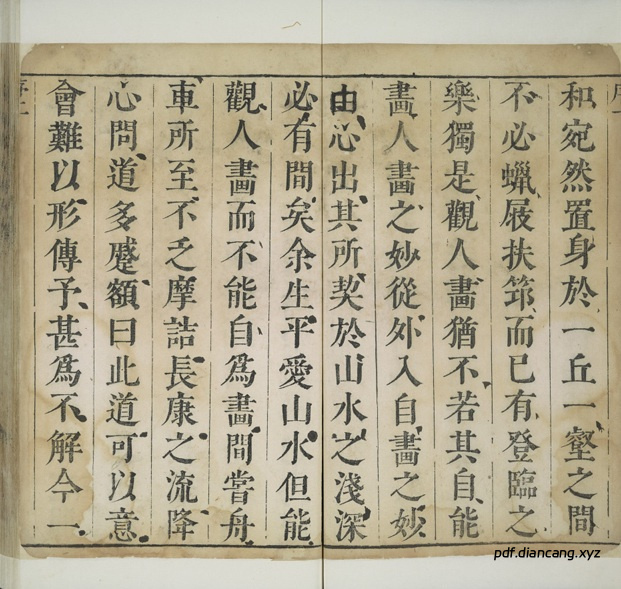 和宛然置身於一丘一壑之間
不必蠟屐扶筇而已有登臨之
樂獨是觀人畫猶不若其自能
畫人畫之妙從外入自畫之妙
由心出其所契於山水之淺深
必有間矣余生平愛山水但能
觀人畫而不能自為畫間嘗舟
車所至不乏摩詰長康之流降
心問道多蹙額曰此道可以意
會難以形傳予甚為不解今一
pdf.diancang.xyz